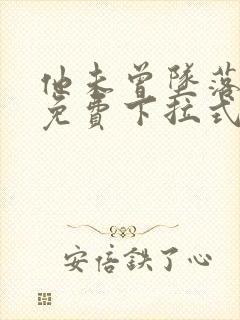 他未曾墜落
免費下拉式
安倍鉄了心